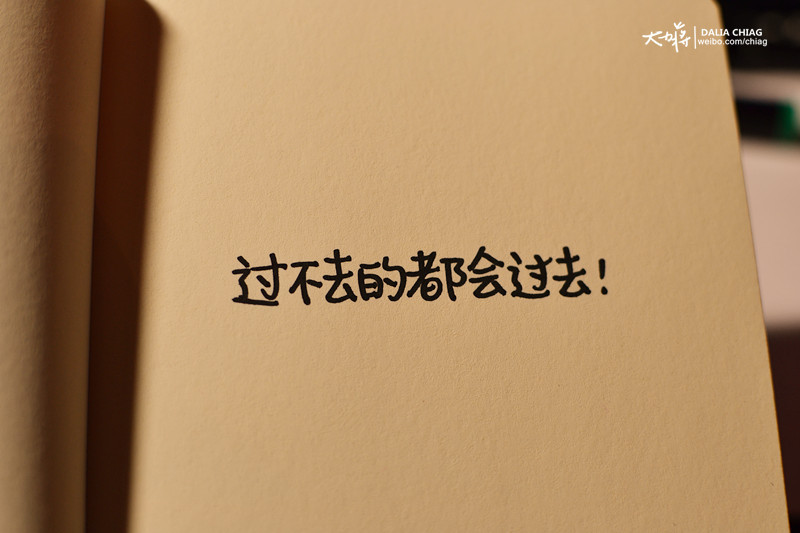 大蒋
DALIA CHIAG
weibo.com/chiag
过不去的都会过去!